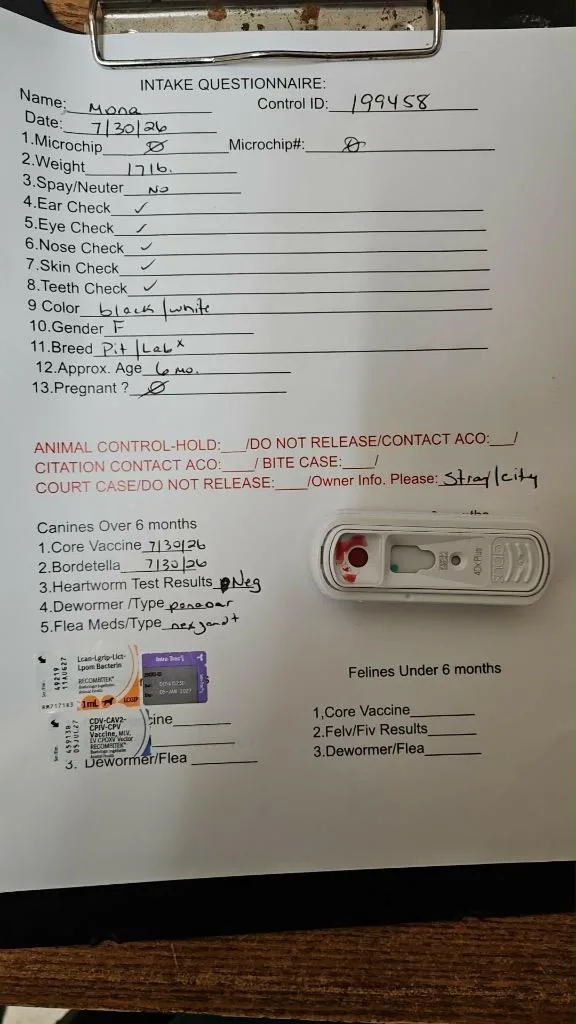 INTAKE QUESTIONNAIRE:
Name: Mona Control ID: 199458
Date: 7/30/26
1.Microchip Ø Microchip#: Ø
2.Weight 17lb.
3.Spay/Neuter NO
4.Ear Check ✓
5.Eye Check ✓
6.Nose Check ✓
7.Skin Check ✓
8.Teeth Check ✓
9 Color black/white
10.Gender F
11.Breed Pit/Lab x
12.Approx. Age 6 mo.
13.Pregnant ? Ø
ANIMAL CONTROL-HOLD:___/DO NOT RELEASE/CONTACT ACO:___/
CITATION CONTACT ACO:____/ BITE CASE:____/
COURT CASE/DO NOT RELEASE:____/Owner Info. Please: Stray/city
Canines Over 6 months
1.Core Vaccine 7/30/26
2.Bordetella 7/30/26
3.Heartworm Test Results Neg
4.Dewormer /Type panacur
5.Flea Meds/Type nexgard+
4Dx Plus
Lcan-Lgrip-Lict-
Lpom Bacterin
RECOMBITEK
1mL
49219
11AUG27
Intra Trac
05-JAN 2027
CDV-CAV2-
CPIV-CPV
Vaccine, MLV,
RECOMBITEK
05JUL27
cine
3. Dewormer/Fea
Felines Under 6 months
1,Core Vaccine
2.Felv/Fiv Results
3.Dewormer/Flea